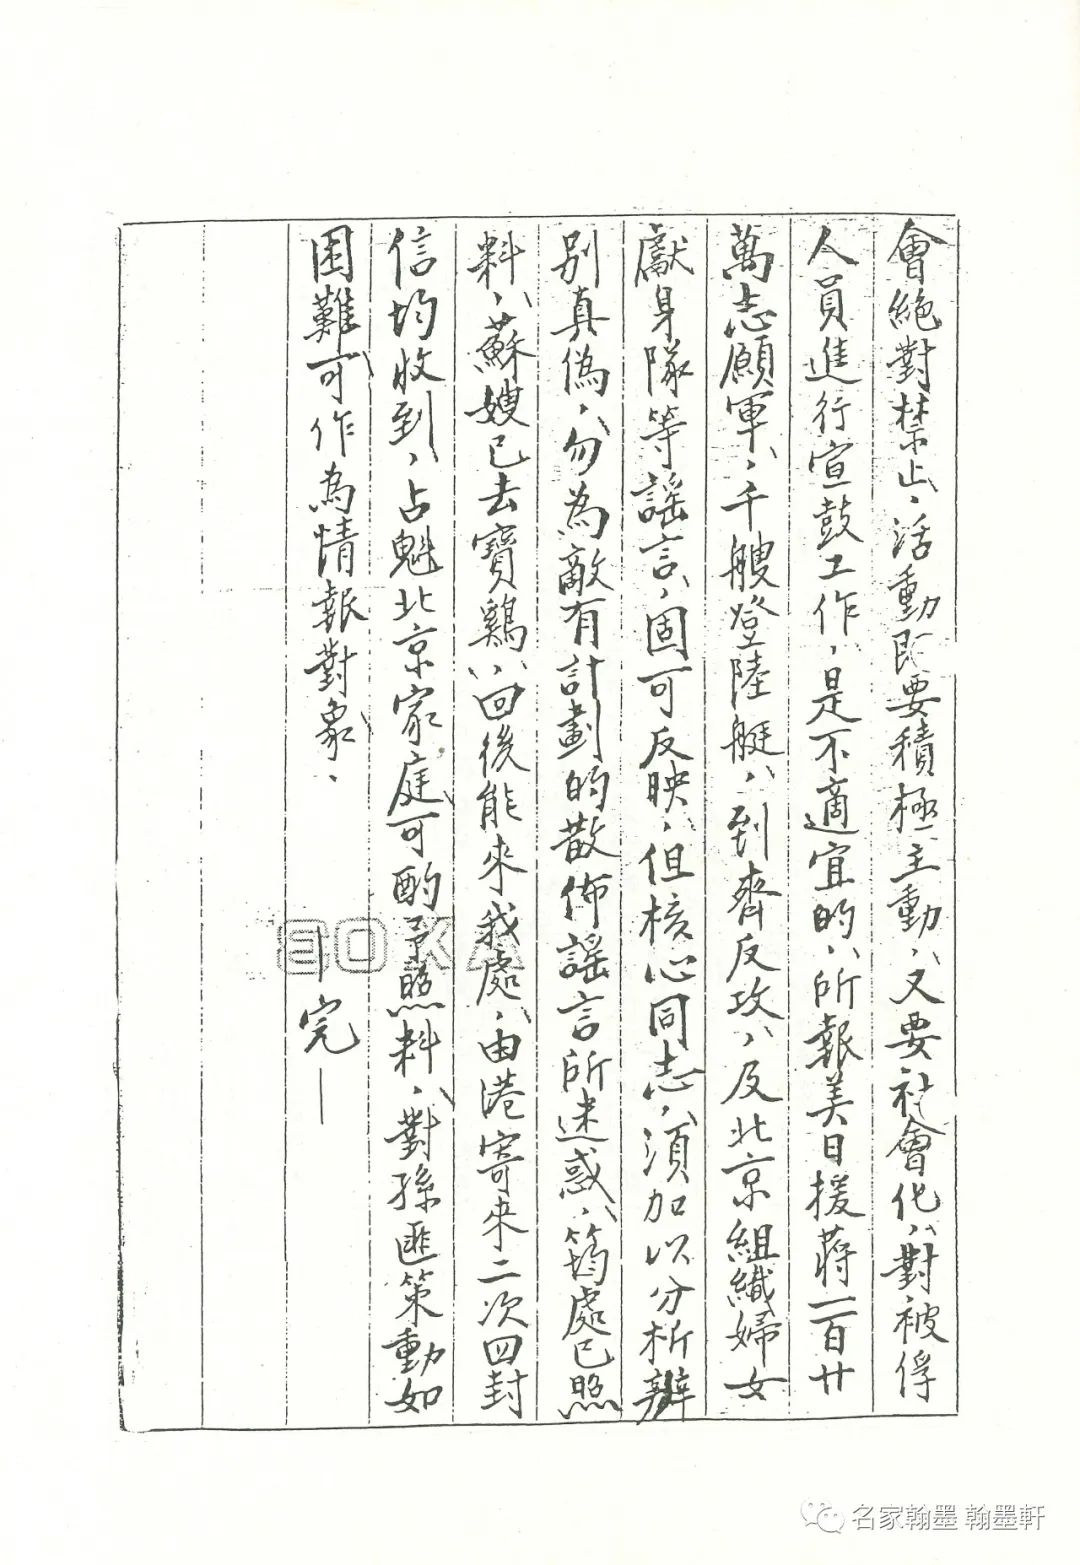 會絕對禁止、活動既要積極主動、又要社會化、對被俘
人員進行宣鼓工作、是不適宜的、所報美日援蔣一百廿
萬志願軍、千艘登陸艇、到齊反攻、及北京組織婦女
獻身隊等謠言、固可反映、但核心同志、須加以分析辨
別真偽、勿為敵有計劃的散佈謠言所迷惑、筠處已照
料、蘇嫂已去寶鷄、回後能來我處、由港寄來二次四封
信均收到、占魁北京家庭可酌予照料、對孫匪策動如
困難可作為情報對象、
—完—
名家翰墨 翰墨軒